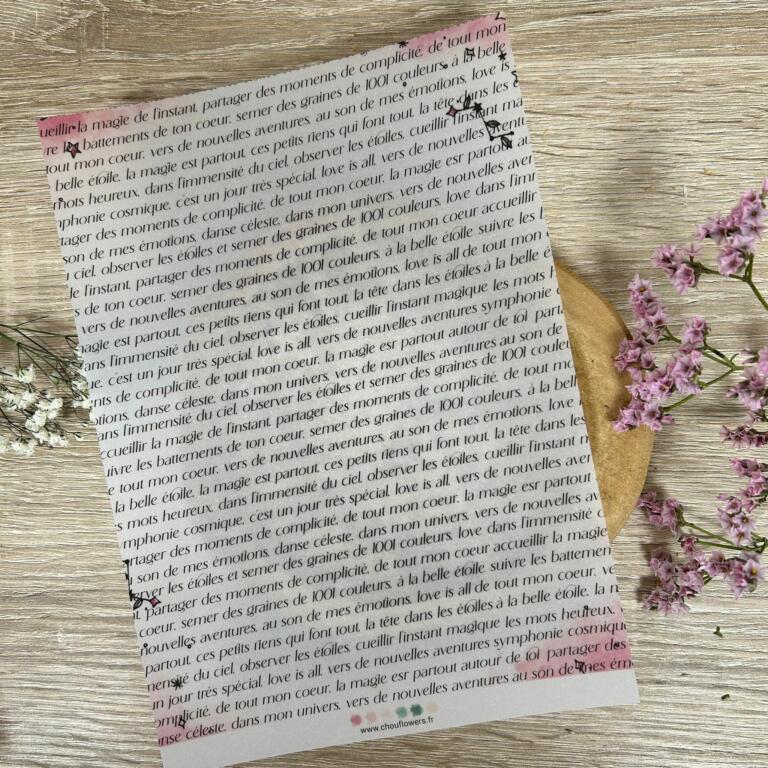 cueillir la magie de l'instant. partager des moments de complicité. de tout mon
re les battements de ton coeur. semer des graines de 1001 couleurs. à la belle
tout mon coeur. vers de nouvelles aventures. au son de mes émotions. love is
belle étoile. la magie est partout. ces petits riens qui font tout. la tête dans les é
mots heureux. dans l'immensité du ciel. observer les étoiles. cueillir l'instant ma
phonie cosmique. c'est un jour très spécial. love is all. vers de nouvelles aventu
tager des moments de complicité. de tout mon coeur. la magie esr partout au
son de mes émotions. danse céleste. dans mon univers. vers de nouvelles aven
ciel. observer les étoiles et semer des graines de 1001 couleurs. love dans l'imm
e l'instant. partager des moments de complicité. de tout mon coeur accueillir
s de ton coeur. semer des graines de 1001 couleurs. à la belle étoile suivre les b
vers de nouvelles aventures. au son de mes émotions. love is all de tout mon
magie est partout. ces petits riens qui font tout. la tête dans les étoiles à la belle é
ans l'immensité du ciel. observer les étoiles. cueillir l'instant magique les mots h
e. c'est un jour très spécial. love is all. vers de nouvelles aventures symphonie c
nts de complicité. de tout mon coeur. la magie esr partout autour de toi part
otions. danse céleste. dans mon univers. vers de nouvelles aventures au son de
ans l'immensité du ciel. observer les étoiles et semer des graines de 1001 couleu
ccueillir la magie de l'instant. partager des moments de complicité. de tout mo
ivre les battements de ton coeur. semer des graines de 1001 couleurs. à la bell
e tout mon coeur. vers de nouvelles aventures. au son de mes émotions. love
la belle étoile. la magie est partout. ces petits riens qui font tout. la tête dans les
s mots heureux. dans l'immensité du ciel. observer les étoiles. cueillir l'instant m
mphonie cosmique. c'est un jour très spécial. love is all. vers de nouvelles aven
rtager des moments de complicité. de tout mon coeur. la magie esr partout
son de mes émotions. danse céleste. dans mon univers. vers de nouvelles av
rver les étoiles et semer des graines de 1001 couleurs. love dans l'immensité d
t. partager des moments de complicité. de tout mon coeur accueillir la magie
coeur. semer des graines de 1001 couleurs. à la belle étoile suivre les battemen
nouvelles aventures. au son de mes émotions. love is all de tout mon coeur. ve
partout. ces petits riens qui font tout. la tête dans les étoiles à la belle étoile. la m
mensité du ciel. observer les étoiles. cueillir l'instant magique les mots heureux.
n jour très spécial. love is all. vers de nouvelles aventures symphonie cosmiqu
omplicité. de tout mon coeur. la magie esr partout autour de toi partager des
anse céleste. dans mon univers. vers de nouvelles aventures au son de mes ém
www.chouflowers.fr